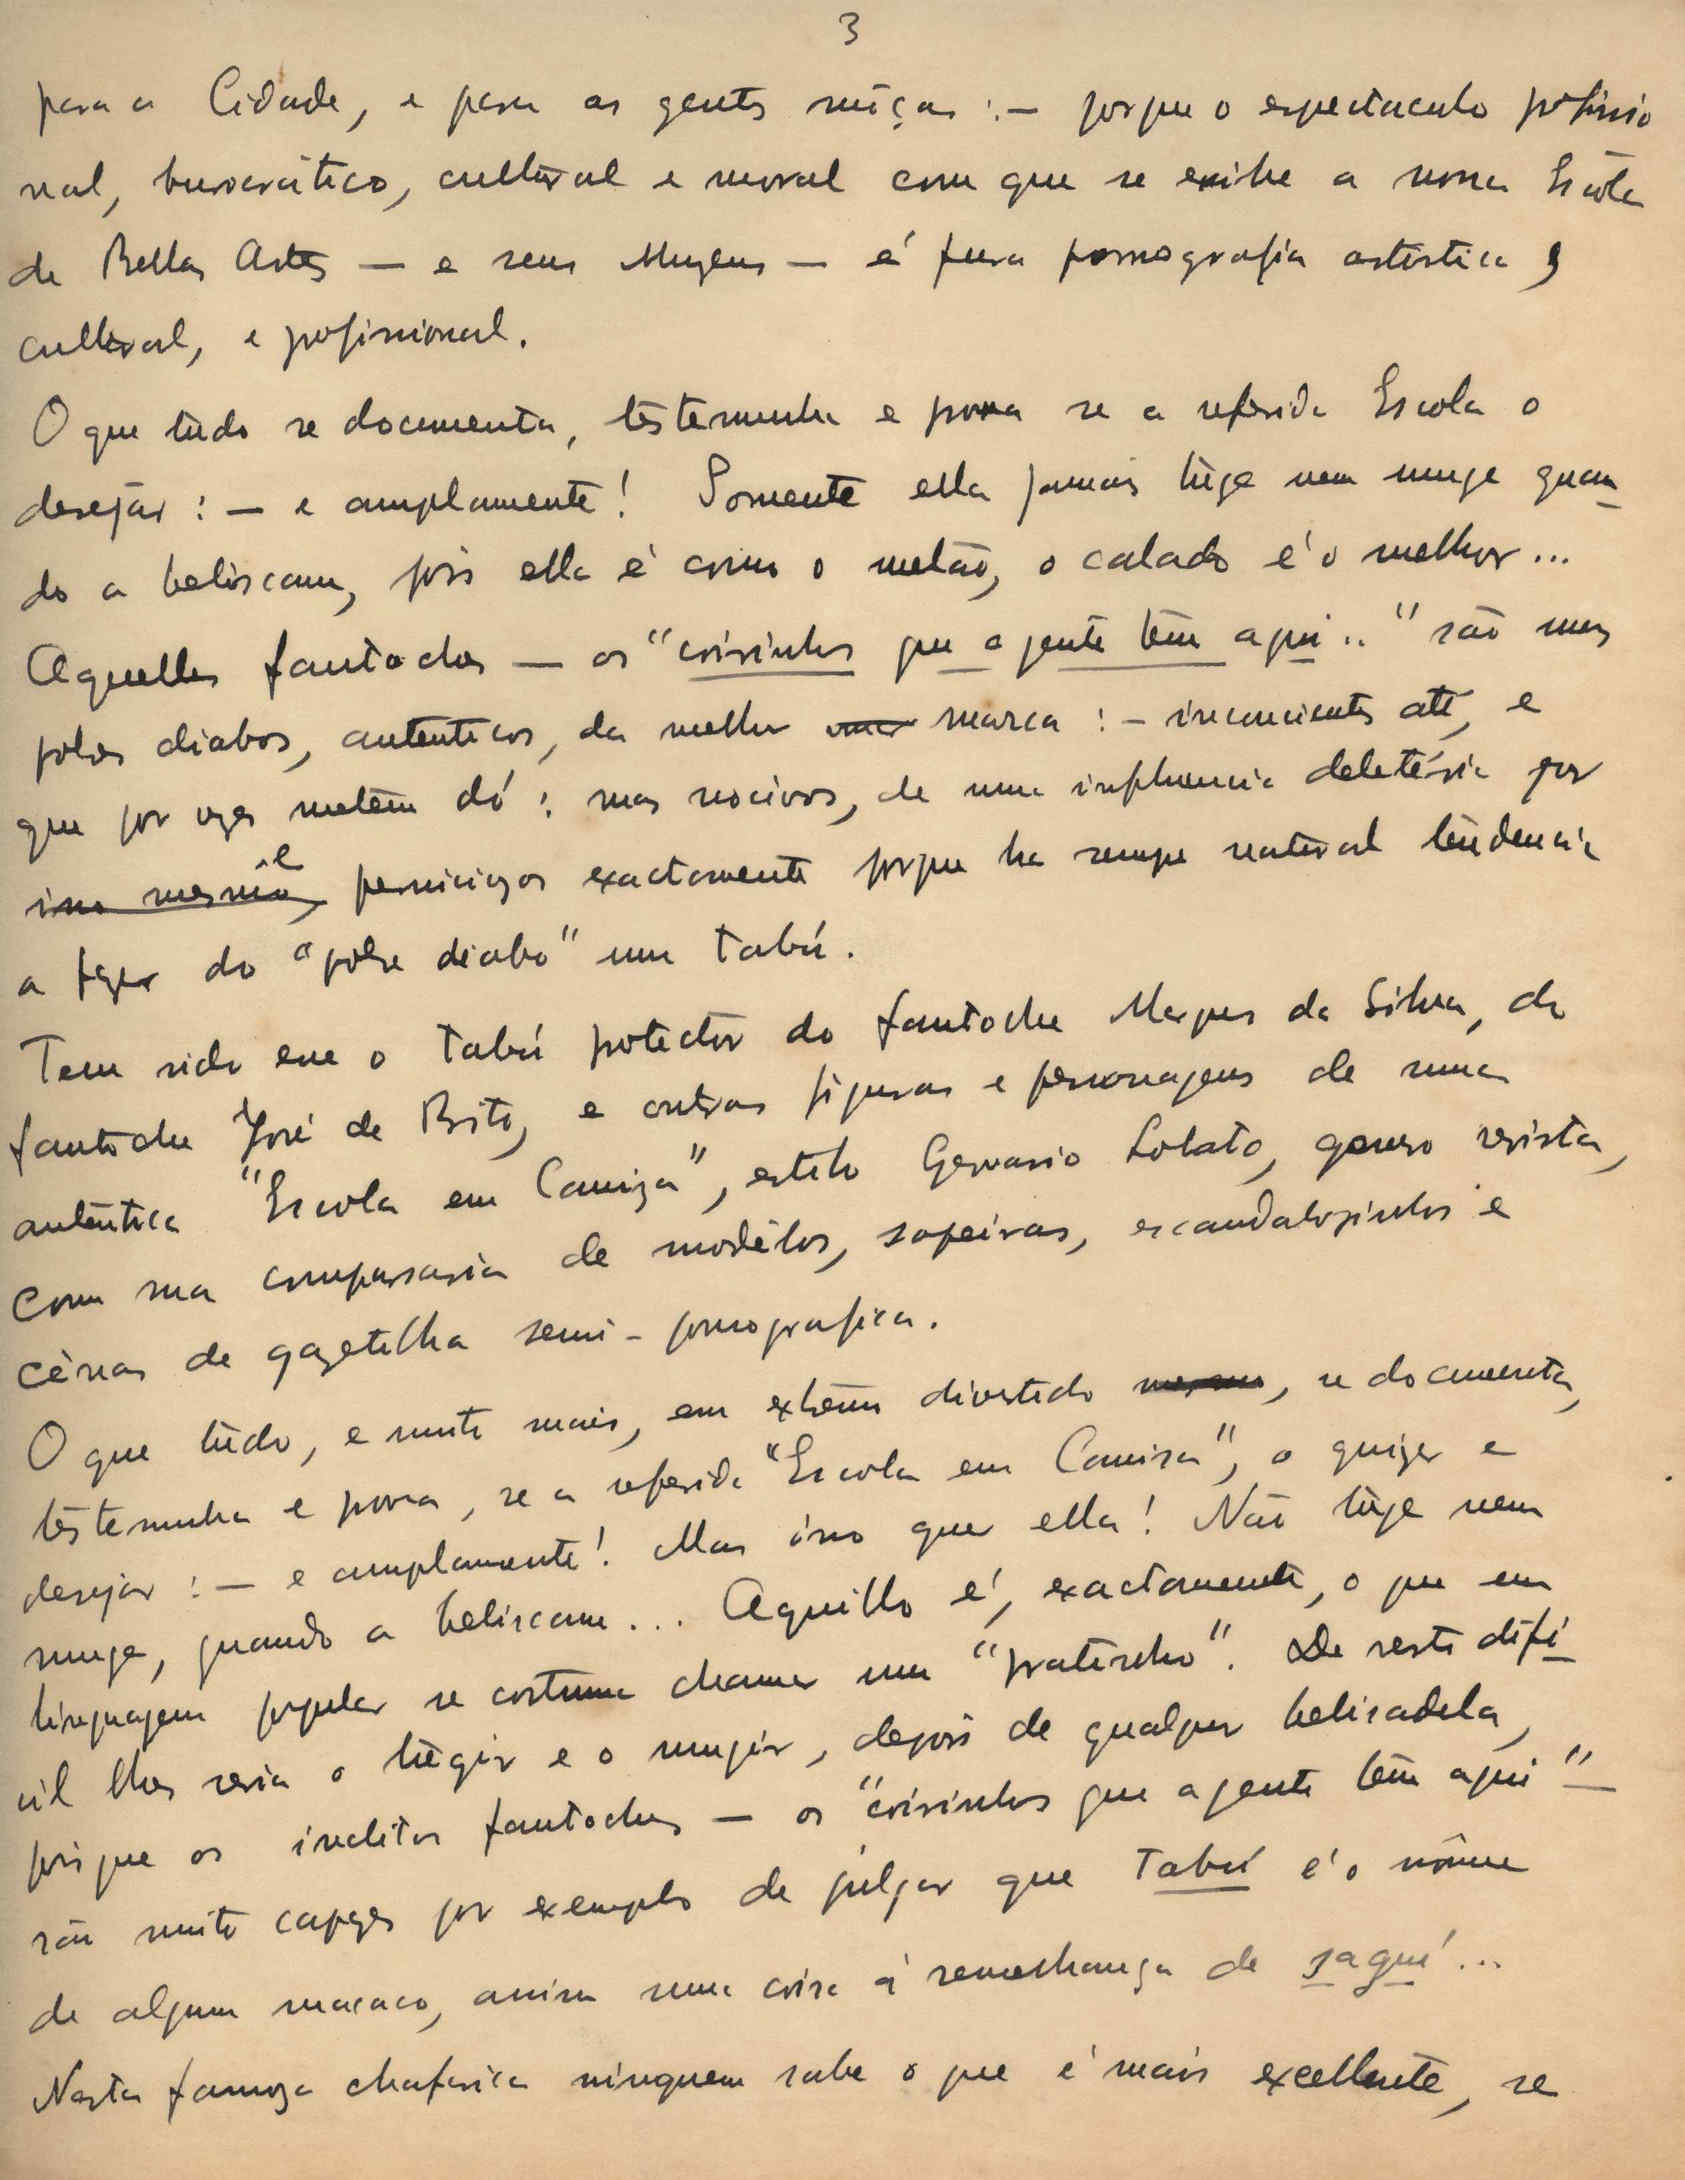 3
para a Cidade, e para as gentes môças :— porque o espectaculo profissio
nal, burocrático, cultural e moral com que se exibe a nossa Escóla
de Bellas Artes — e seus Muzeus — é pura pornografia artistica,
cultural, e profissional.
O que tudo se documenta, testemunha e prova se a referida Escola o
desejar :— e amplamente! Somente ella jamais tuge nem muge quan_
do a beliscam, pois ella é como o melão, o calado é o melhor...
Aquelles fantoches — os "coisinhos que a gente têm aqui.." são uns
pobres diabos, autenticos, da melhor marca :— inconcientes até, e
que por vezes metem dó : mas nocivos, de uma influencia deletéria por
isso mesmo, e perniciozos exactamente porque ha sempre natural tendencia
a fazer do "pobre diabo" um tabú.
Tem sido esse o tabú protector do fantoche Marques da Silva, do
fantoche José de Brito, e outras figuras e personagens de uma
autentica "Escola em Camiza", estilo Gervasio Lobato, genero revista,
com sua comparsaria de modêlos, sopeiras, escandalozinhos e
cênas de gazetilha semi-pornografica.
O que tudo, e muito mais, em extremo divertido mesmo, se documenta,
testemunha e prova, se a referida "Escola em Camisa", o quizer e
desejar :— e amplamente! Mas isso quer ella! Não tuge nem
muge, quando a beliscam... Aquillo é, exactamente, o que em
linguagem popular se costuma chamar um "pratinho". De resto difi_
cil lhes seria o tugir e o mugir, depois de qualquer beliscadela,
pois que os inclitos fantoches — os "coisinhos que a gente têm aqui" —
são muito capazes por exemplo de julgar que Tabú é o nôme
de algum macaco, assim uma coisa á semelhança de saguí...
Nesta famoza chafarica ninguem sabe o que é mais excellente, se